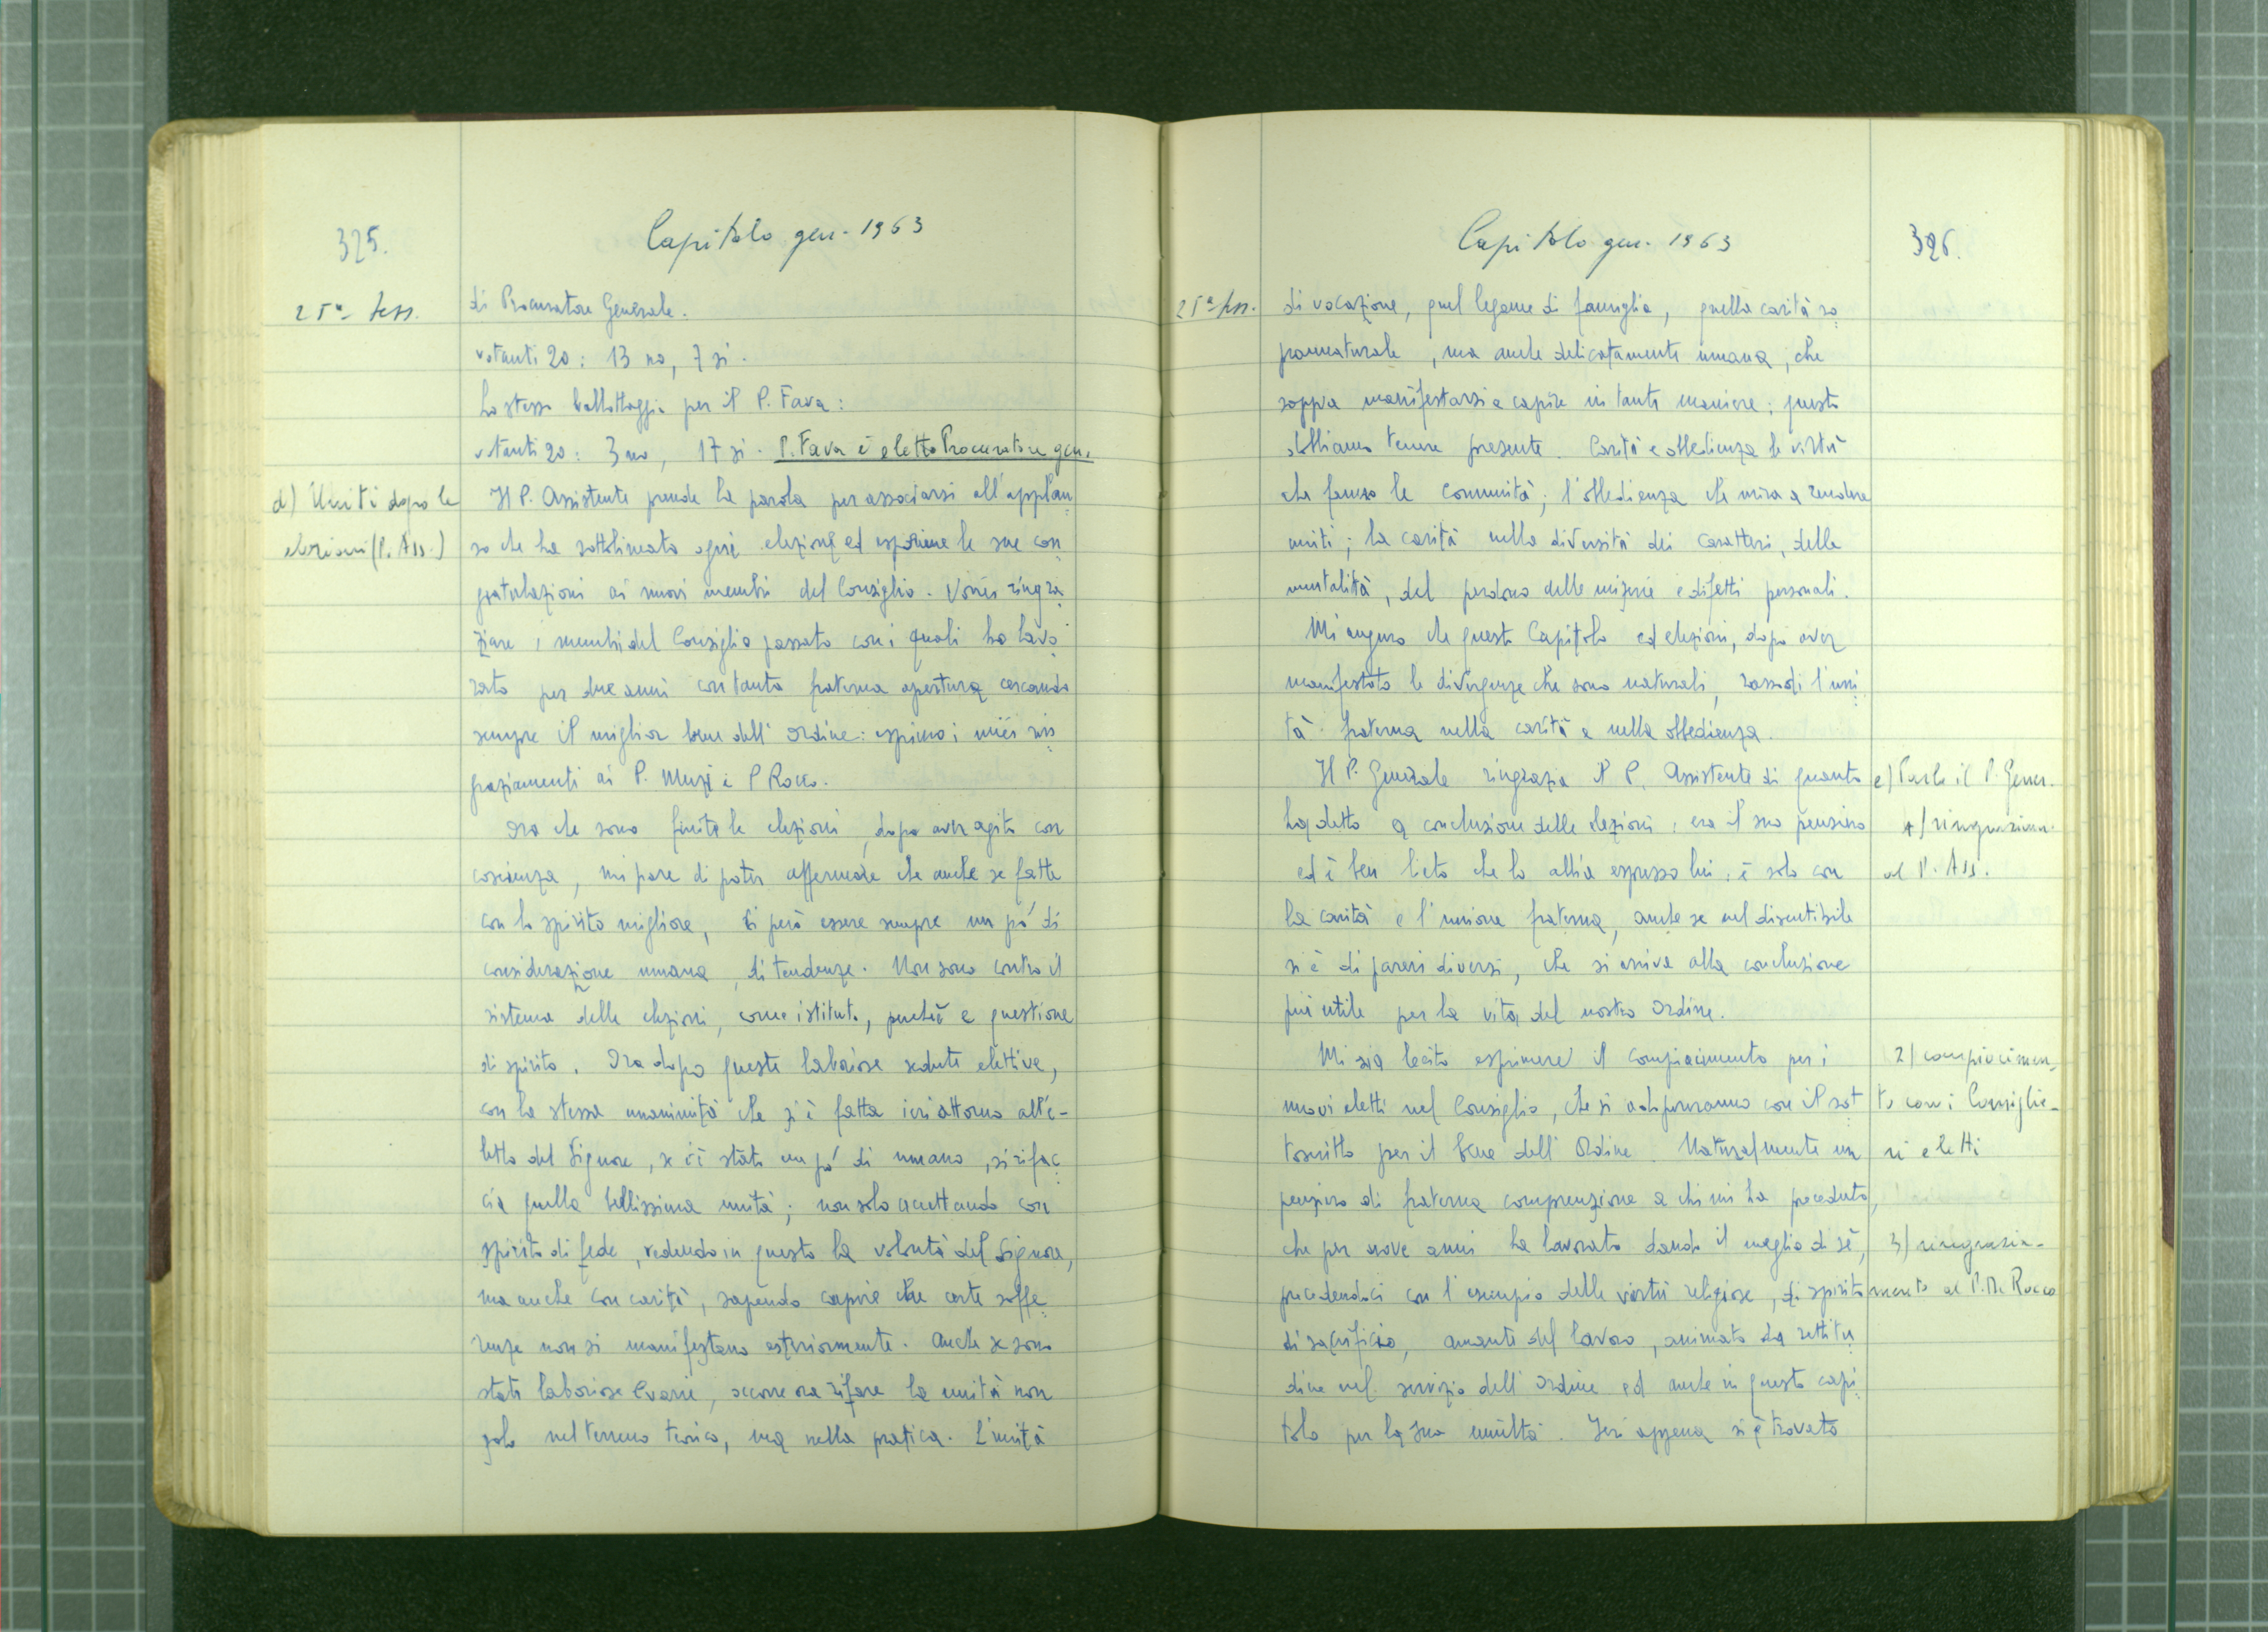 325.
Capitolo gen. 1963
25ª Sess.
di Procuratore Generale.
votanti 20: 13 no, 7 si.
Lo stesso ballottaggio per il P. Fava:
votanti 20: 3 no, 17 si. P. Fava è eletto Procuratore gen.
d) Uniti dopo le
elezioni (P. Ass.)
Il P. Assistente prende la parola per associarsi all'applau
so che ha sottolineato ogni elezione ed esprimere le sue con
gratulazioni ai nuovi membri del Consiglio. Vorrei ringra
ziare i membri del Consiglio passato con i quali ho lavo
rato per due anni con tanta fraterna apertura cercando
sempre il miglior bene dell'Ordine: esprimo i miei rin
graziamenti ai P. Muzi e P Rocco.
Ora che sono finite le elezioni, dopo aver agito con
coscienza, mi pare di poter affermare che anche se fatte
con lo spirito migliore, ci può essere sempre un pó di
considerazione umana, di tendenze. Non sono contro il
sistema delle elezioni, come istituto, perchè è questione
di spirito. Ora dopo queste laboriose sedute elettive,
con la stessa unanimità che si è fatta ieri attorno all'e-
letto del Signore, se c'è stato un pó di umano, si rifac
cia quella bellissima unità; non solo accettando con
spirito di fede, vedendo in questo la volontà del Signore,
ma anche con carità, sapendo capire che certe soffe
renze non si manifestano esteriormente. Anche se sono
state laboriose e varie, occorre ora rifare la unità non
solo nel terreno teorico, ma nella pratica. L'unità
Capitolo gen. 1963
326.
25ª Sess.
di vocazione, quel legame di famiglia, quella carità so
prannaturale, ma anche delicatamente umana, che
sappia manifestarsi e capire in tante maniere; questo
dobbiamo tenere presente. Carità e obbedienza le virtù
che fanno le comunità; l'obbedienza che mira a rendere
uniti; la carità nella diversità dei caratteri, delle
mentalità, del perdono delle miserie e difetti personali.
Mi auguro che questo Capitolo ed elezioni, dopo aver
manifestato le divergenze che sono naturali, rassodi l'uni
tà fraterna nella carità e nella obbedienza.
Il P. Generale ringrazia il P. Assistente di quanto
e) Parla il P. Gener.
ha detto a conclusione delle elezioni: era il suo pensiero
1) ringraziam.
ed è ben lieto che lo abbia espresso lui: è solo con
al P. Ass.
la carità e l'unione fraterna, anche se nel discutibile
si è di pareri diversi, che si arriva alla conclusione
più utile per la vita del nostro Ordine.
Mi sia lecito esprimere il compiacimento per i
2) compiacimen_
nuovi eletti nel Consiglio, che si adopereranno con il sot
to con i Consiglie-
toscritto per il bene dell'Ordine. Naturalmente un
ri eletti
pensiero di fraterna comprensione a chi mi ha preceduto,
che per nove anni ha lavorato dando il meglio di sè,
3) ringrazia-
precedendoci con l'esempio delle virtù religiose, di spirito
mento al P. M. Rocco
di sacrificio, amante del lavoro, animato da rettitu
dine nel servizio dell'Ordine ed anche in questo capi
tolo per la sua umiltà. Ieri appena si è trovato